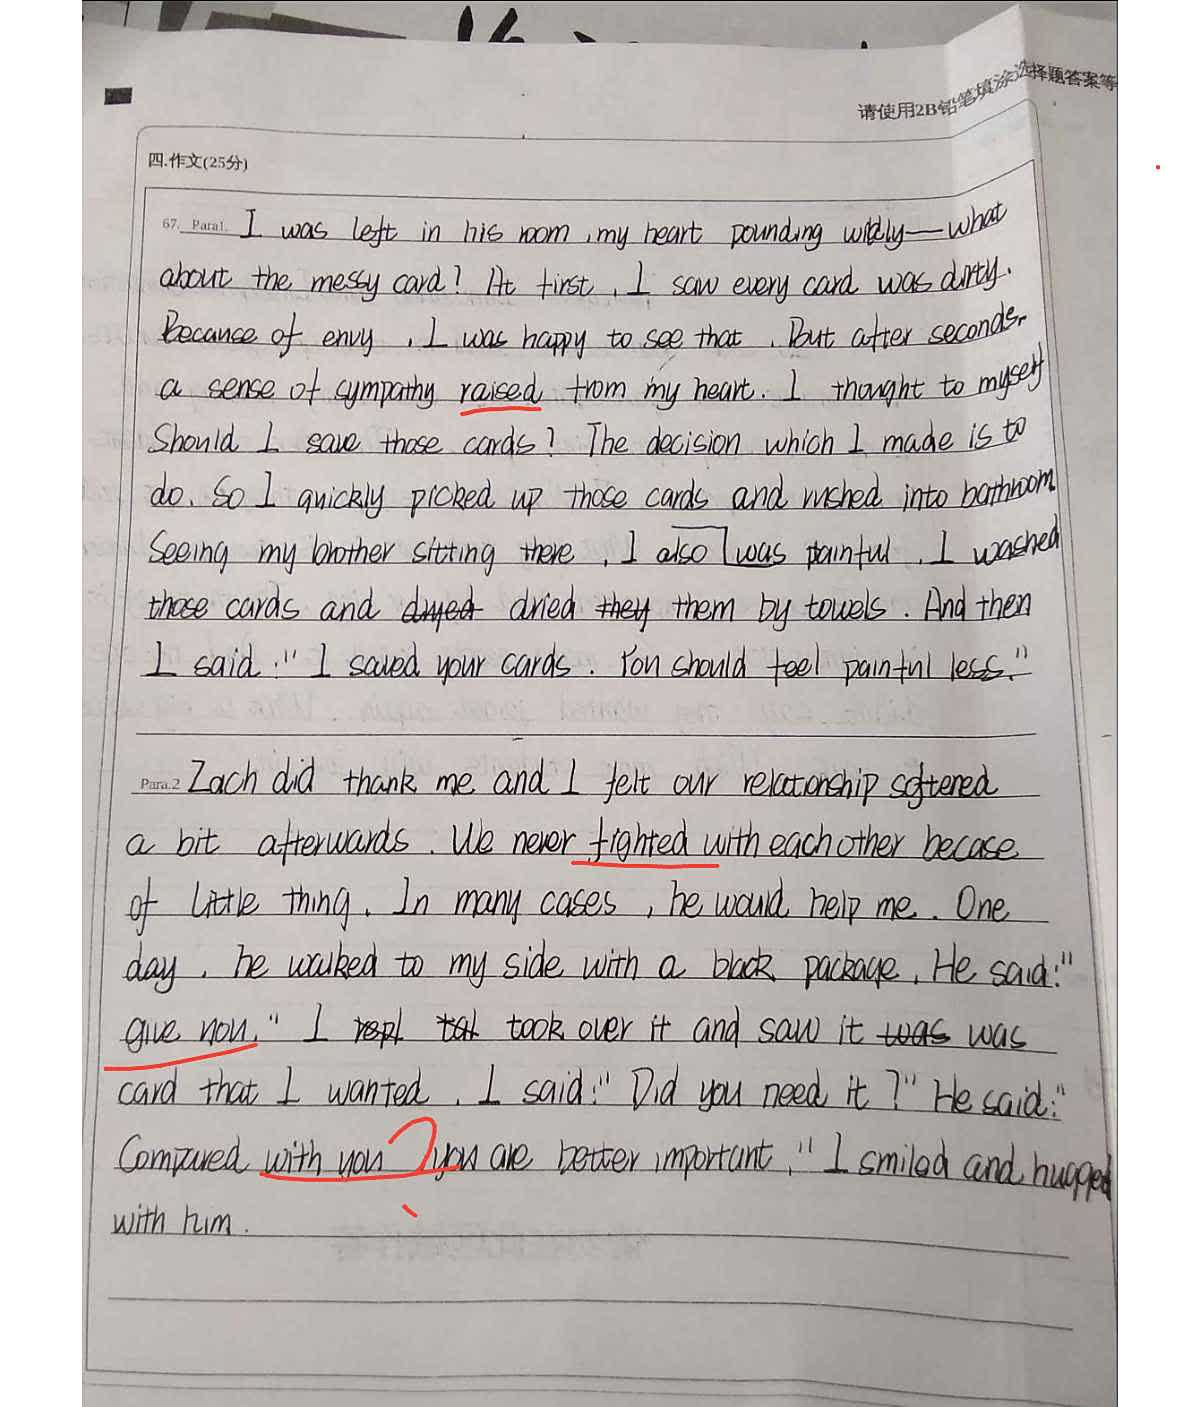 请使用2B铅笔填涂选择题答案等
四.作文(25分)
67. Para1. I was left in his room , my heart pounding wildly—what
about the messy card! At first , I saw every card was dirty.
Because of envy , I was happy to see that . But after seconds,
a sense of sympathy raised from my heart. I thought to myself
Should I save those cards? The decision which I made is to
do. So I quickly picked up those cards and rushed into bathroom
Seeing my brother sitting there , I also was painful . I washed
those cards and dryed dried they them by towels . And then
I said :" I saved your cards . You should feel painful less."
Para.2 Zach did thank me and I felt our relationship softened
a bit afterwards . We never fighted with each other becase
of little thing. In many cases , he would help me . One
day , he walked to my side with a black package. He said:"
give you." I repl tat took over it and saw it was was
card that I wanted . I said:" Did you need it?" He said:"
Compared with you ? you are better important ." I smiled and hugged
with him .